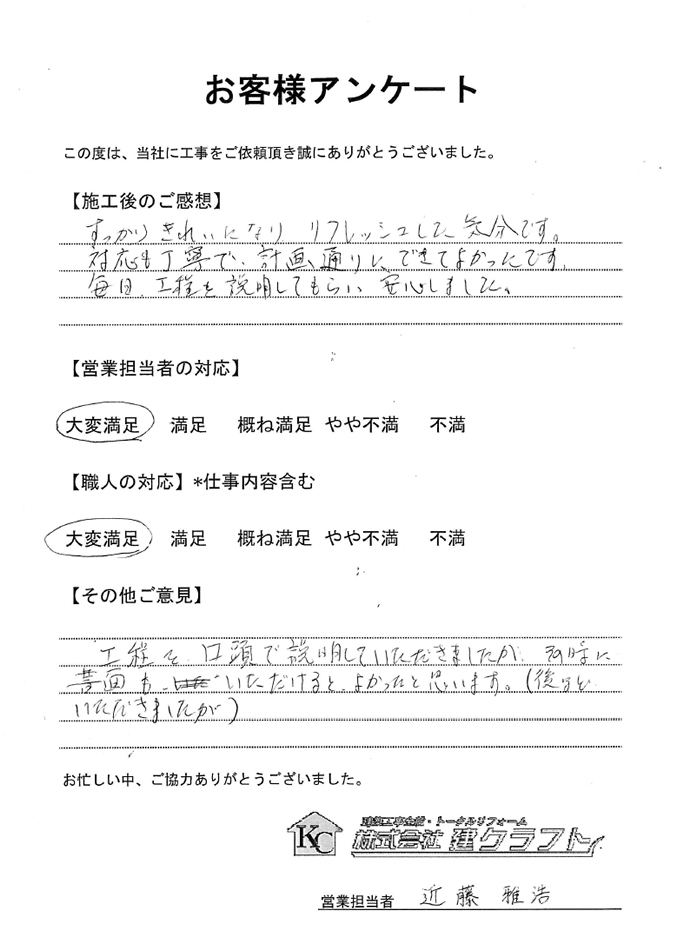 お客様アンケート
この度は、当社に工事をご依頼頂き誠にありがとうございました。
【施工後のご感想】
すっかりきれいになり リフレッシュした気分です。
対応も丁寧で、計画通りにできてよかったです。
毎日、工程を説明してもらい安心しました。
【営業担当者の対応】
大変満足 満足 概ね満足 やや不満 不満
【職人の対応】*仕事内容含む
大変満足 満足 概ね満足 やや不満 不満
【その他ご意見】
工程を口頭で説明していただきましたが、同時に
書面も、いただけると、よかったと思います。(後日
いただきましたが)
お忙しい中、ご協力ありがとうございました。
KC
建築工事全般・トータルリフォーム
株式会社 建クラフト
営業担当者 近藤 雅浩